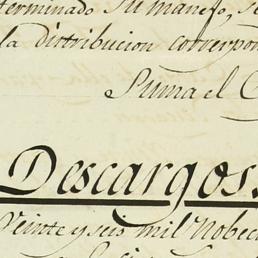 terminado su manejo, se
la distribucion correspon
Suma el C
Descargos.
Veinte y seis mil Nobec